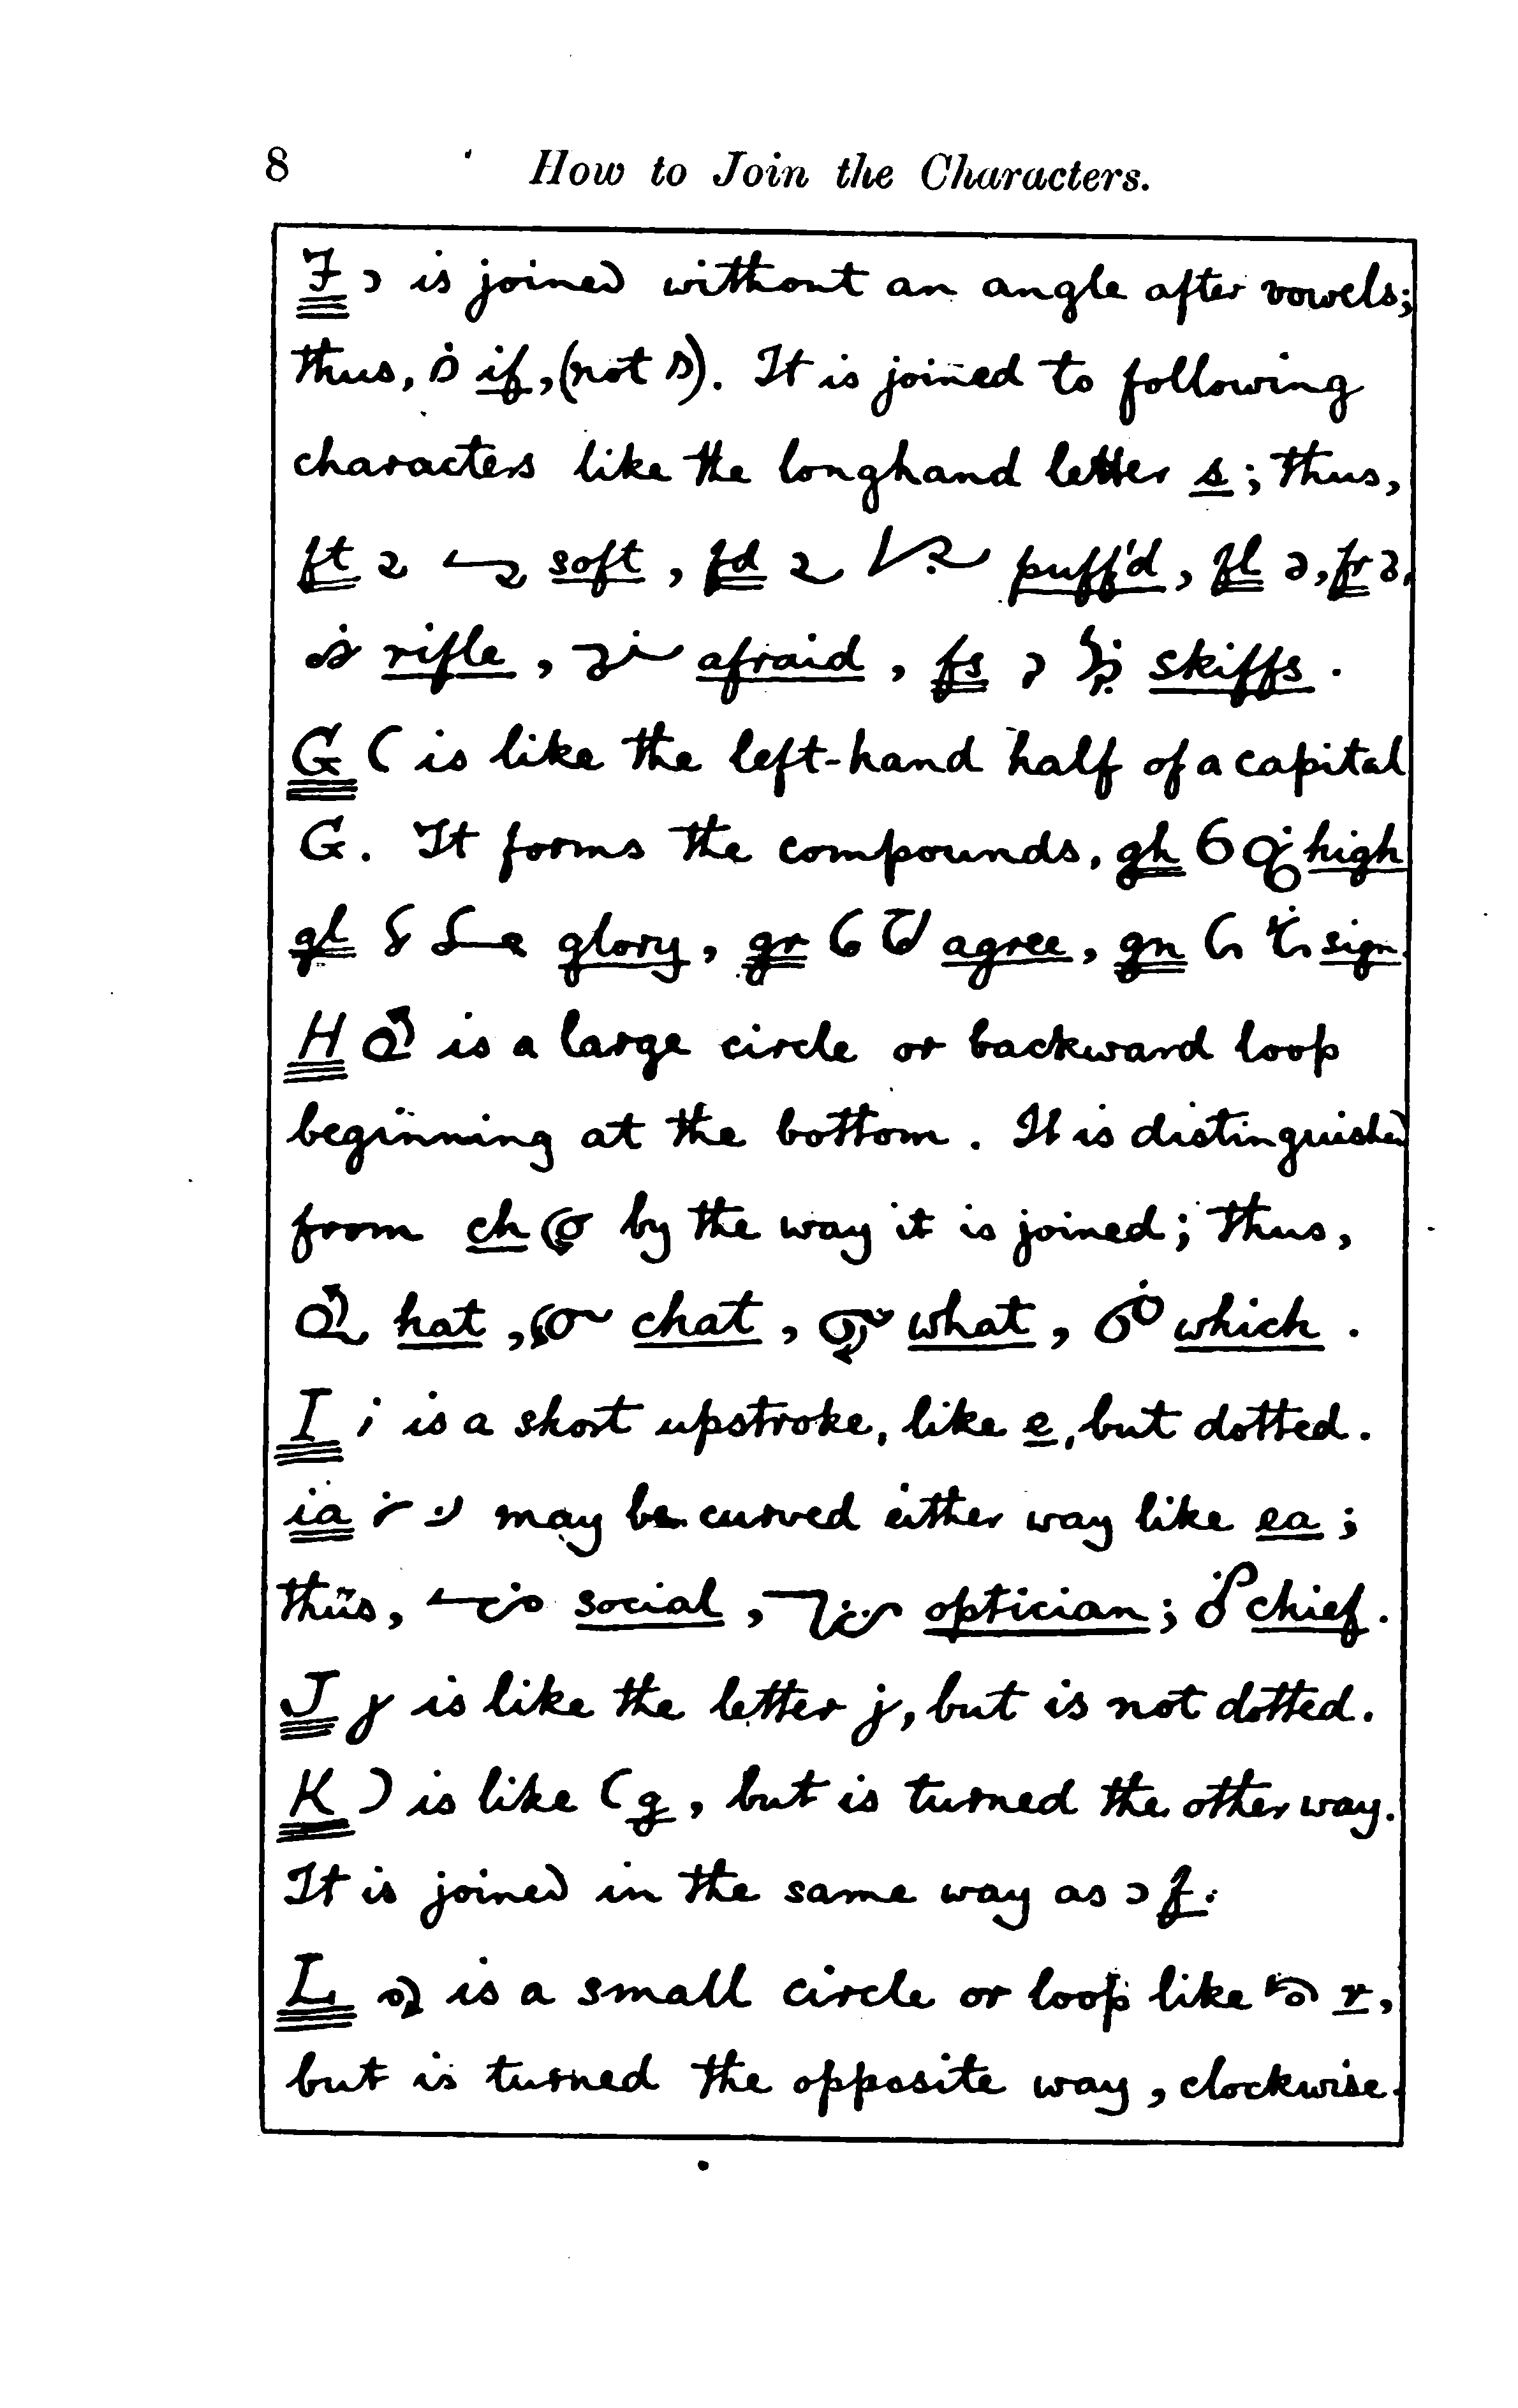 8 How to Join the Characters.
F is joined without an angle after vowels;
thus, if, (not ). It is joined to following
characters like the longhand letter s; thus,
ft soft, fd puff'd, fl , fr ,
rifle, afraid, fs skiffs.
G ( is like the left-hand half of a capital
G. It forms the compounds, gh high
gl glory, gr agree, gn sign.
H is a large circle or backward loop
beginning at the bottom. It is distinguished
from ch by the way it is joined; thus,
hat, chat, what, which.
I is a short upstroke, like e, but dotted.
ia may be curved either way like ea;
thus, social, optician; chief.
J is like the letter j, but is not dotted.
K ) is like ( g, but is turned the other way.
It is joined in the same way as f.
L is a small circle or loop like r,
but is turned the opposite way, clockwise.